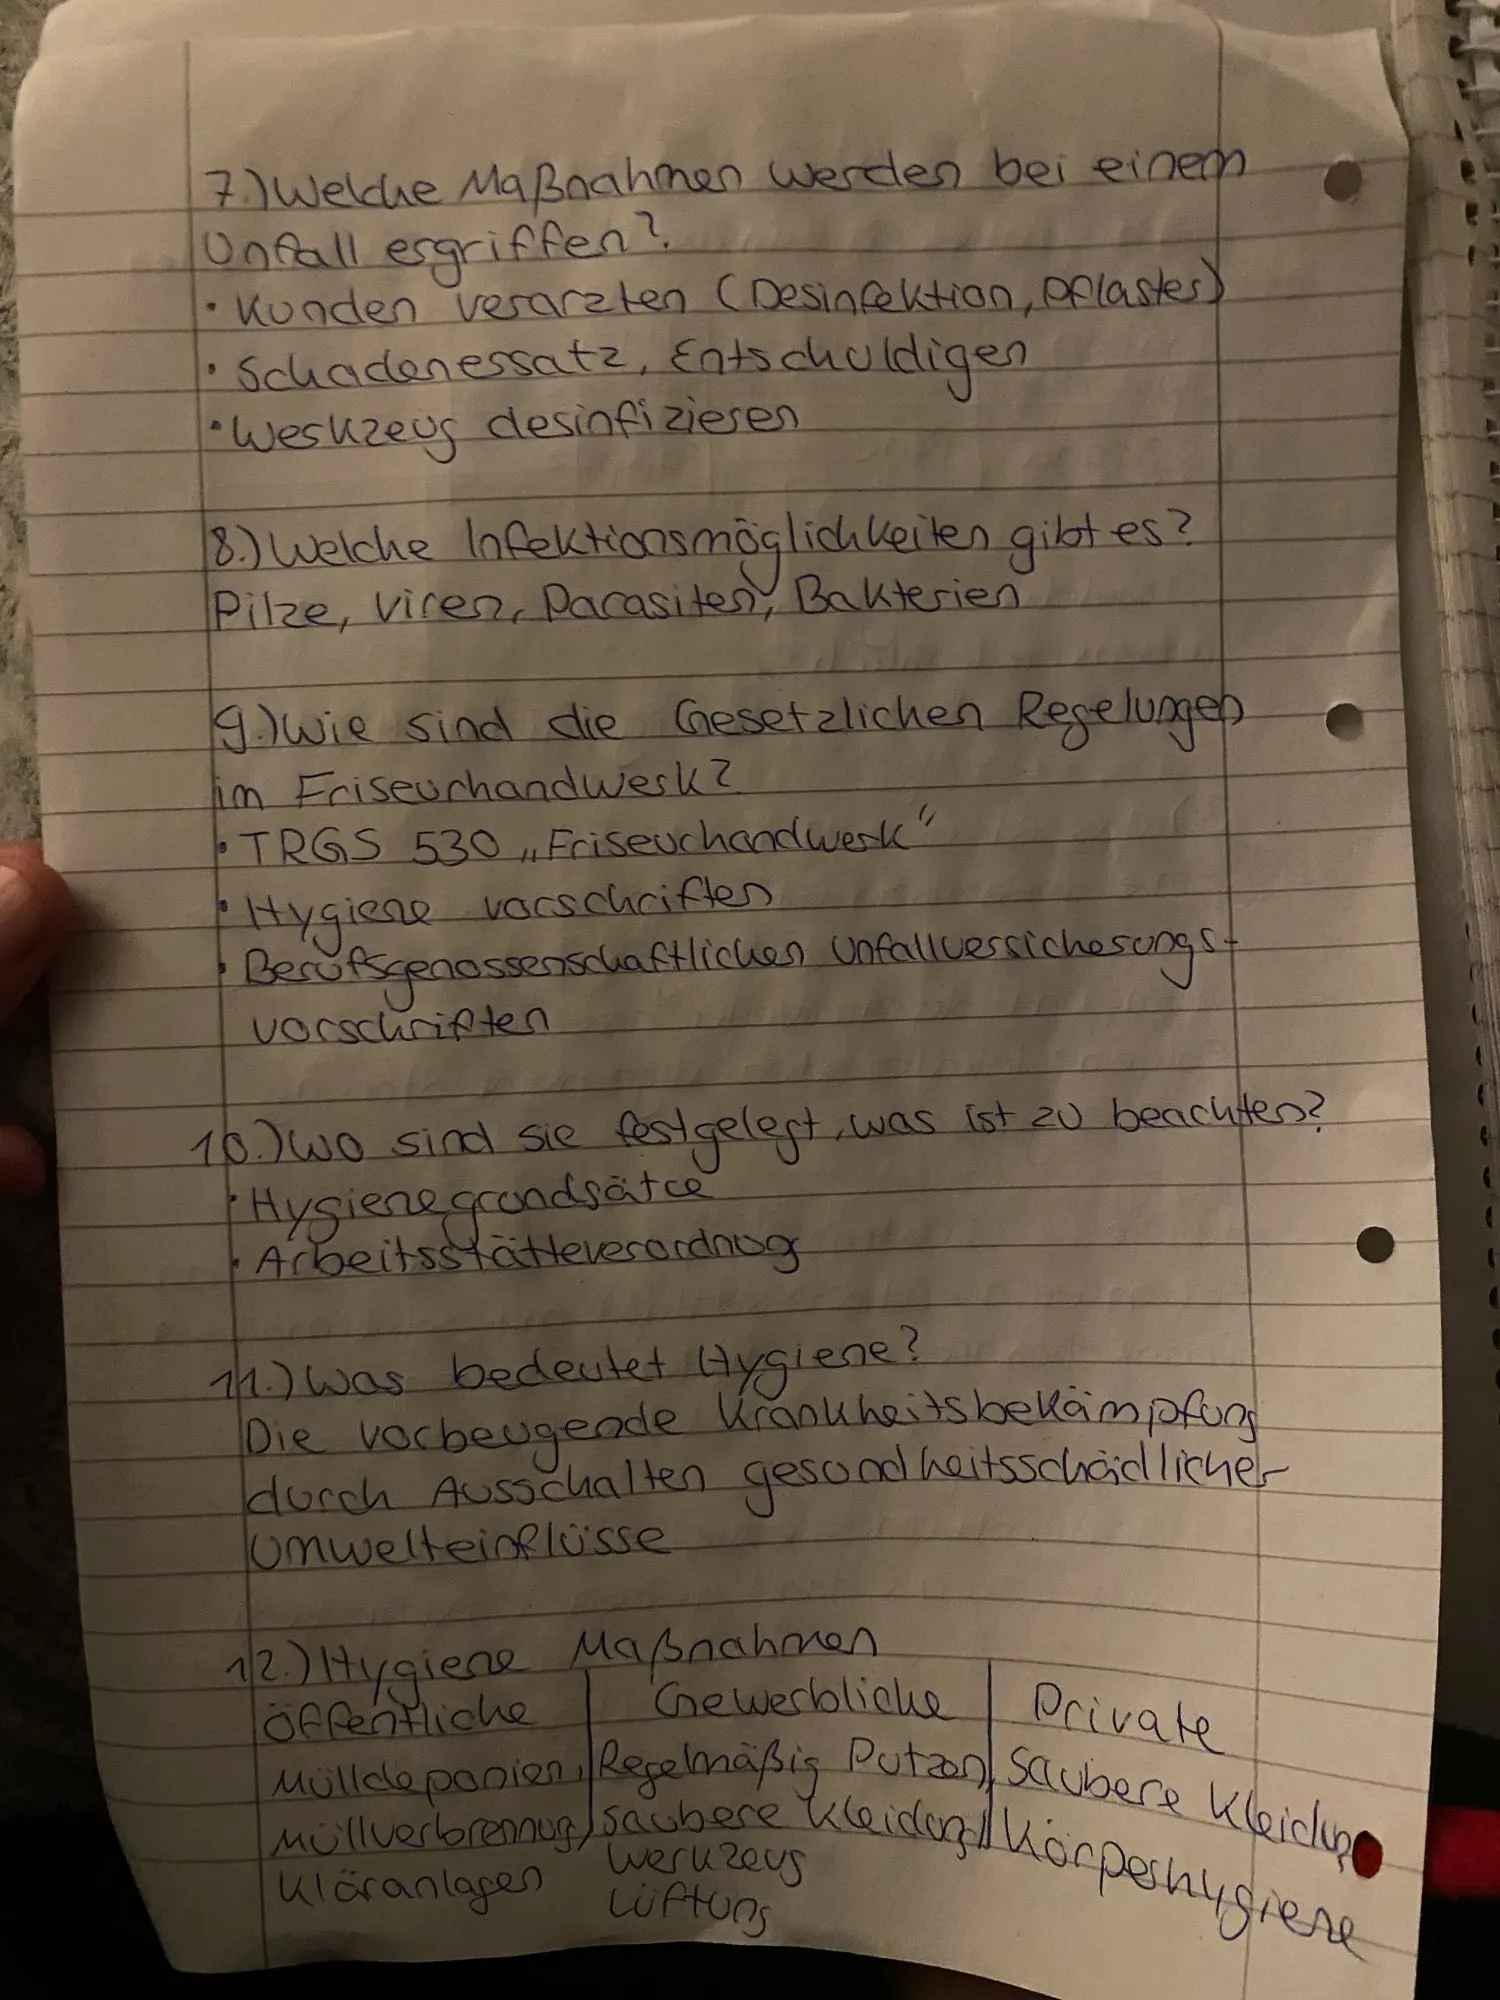 7.) Welche Maßnahmen werden bei einem
Unfall ergriffen?
• Kunden verarzten (Desinfektion, Pflaster)
• Schadenersatz, Entschuldigen
• Werkzeug desinfizieren
8.) Welche Infektionsmöglichkeiten gibt es?
Pilze, Viren, Parasiten, Bakterien
9.) Wie sind die Gesetzlichen Regelungen
im Friseurhandwerk?
• TRGS 530 „Friseurhandwerk"
• Hygiene vorschriften
• Berufsgenossenschaftlichen Unfallversicherungs-
vorschriften
10.) Wo sind sie festgelegt, was ist zu beachten?
• Hygienegrundsätze
• Arbeitsstätteverordnug
11.) Was bedeutet Hygiene?
Die vorbeugende Krankheitsbekämpfung
durch Ausschalten gesundheitsschädlicher
Umwelteinflüsse
12.) Hygiene Maßnahmen
Öffentliche Gewerbliche Private
Mülldeponien, Regelmäßig Putzen, Saubere Kleidung
Müllverbrennug, saubere Kleidung, Körperhygiene
Kläranlagen Werkzeug
Lüftung